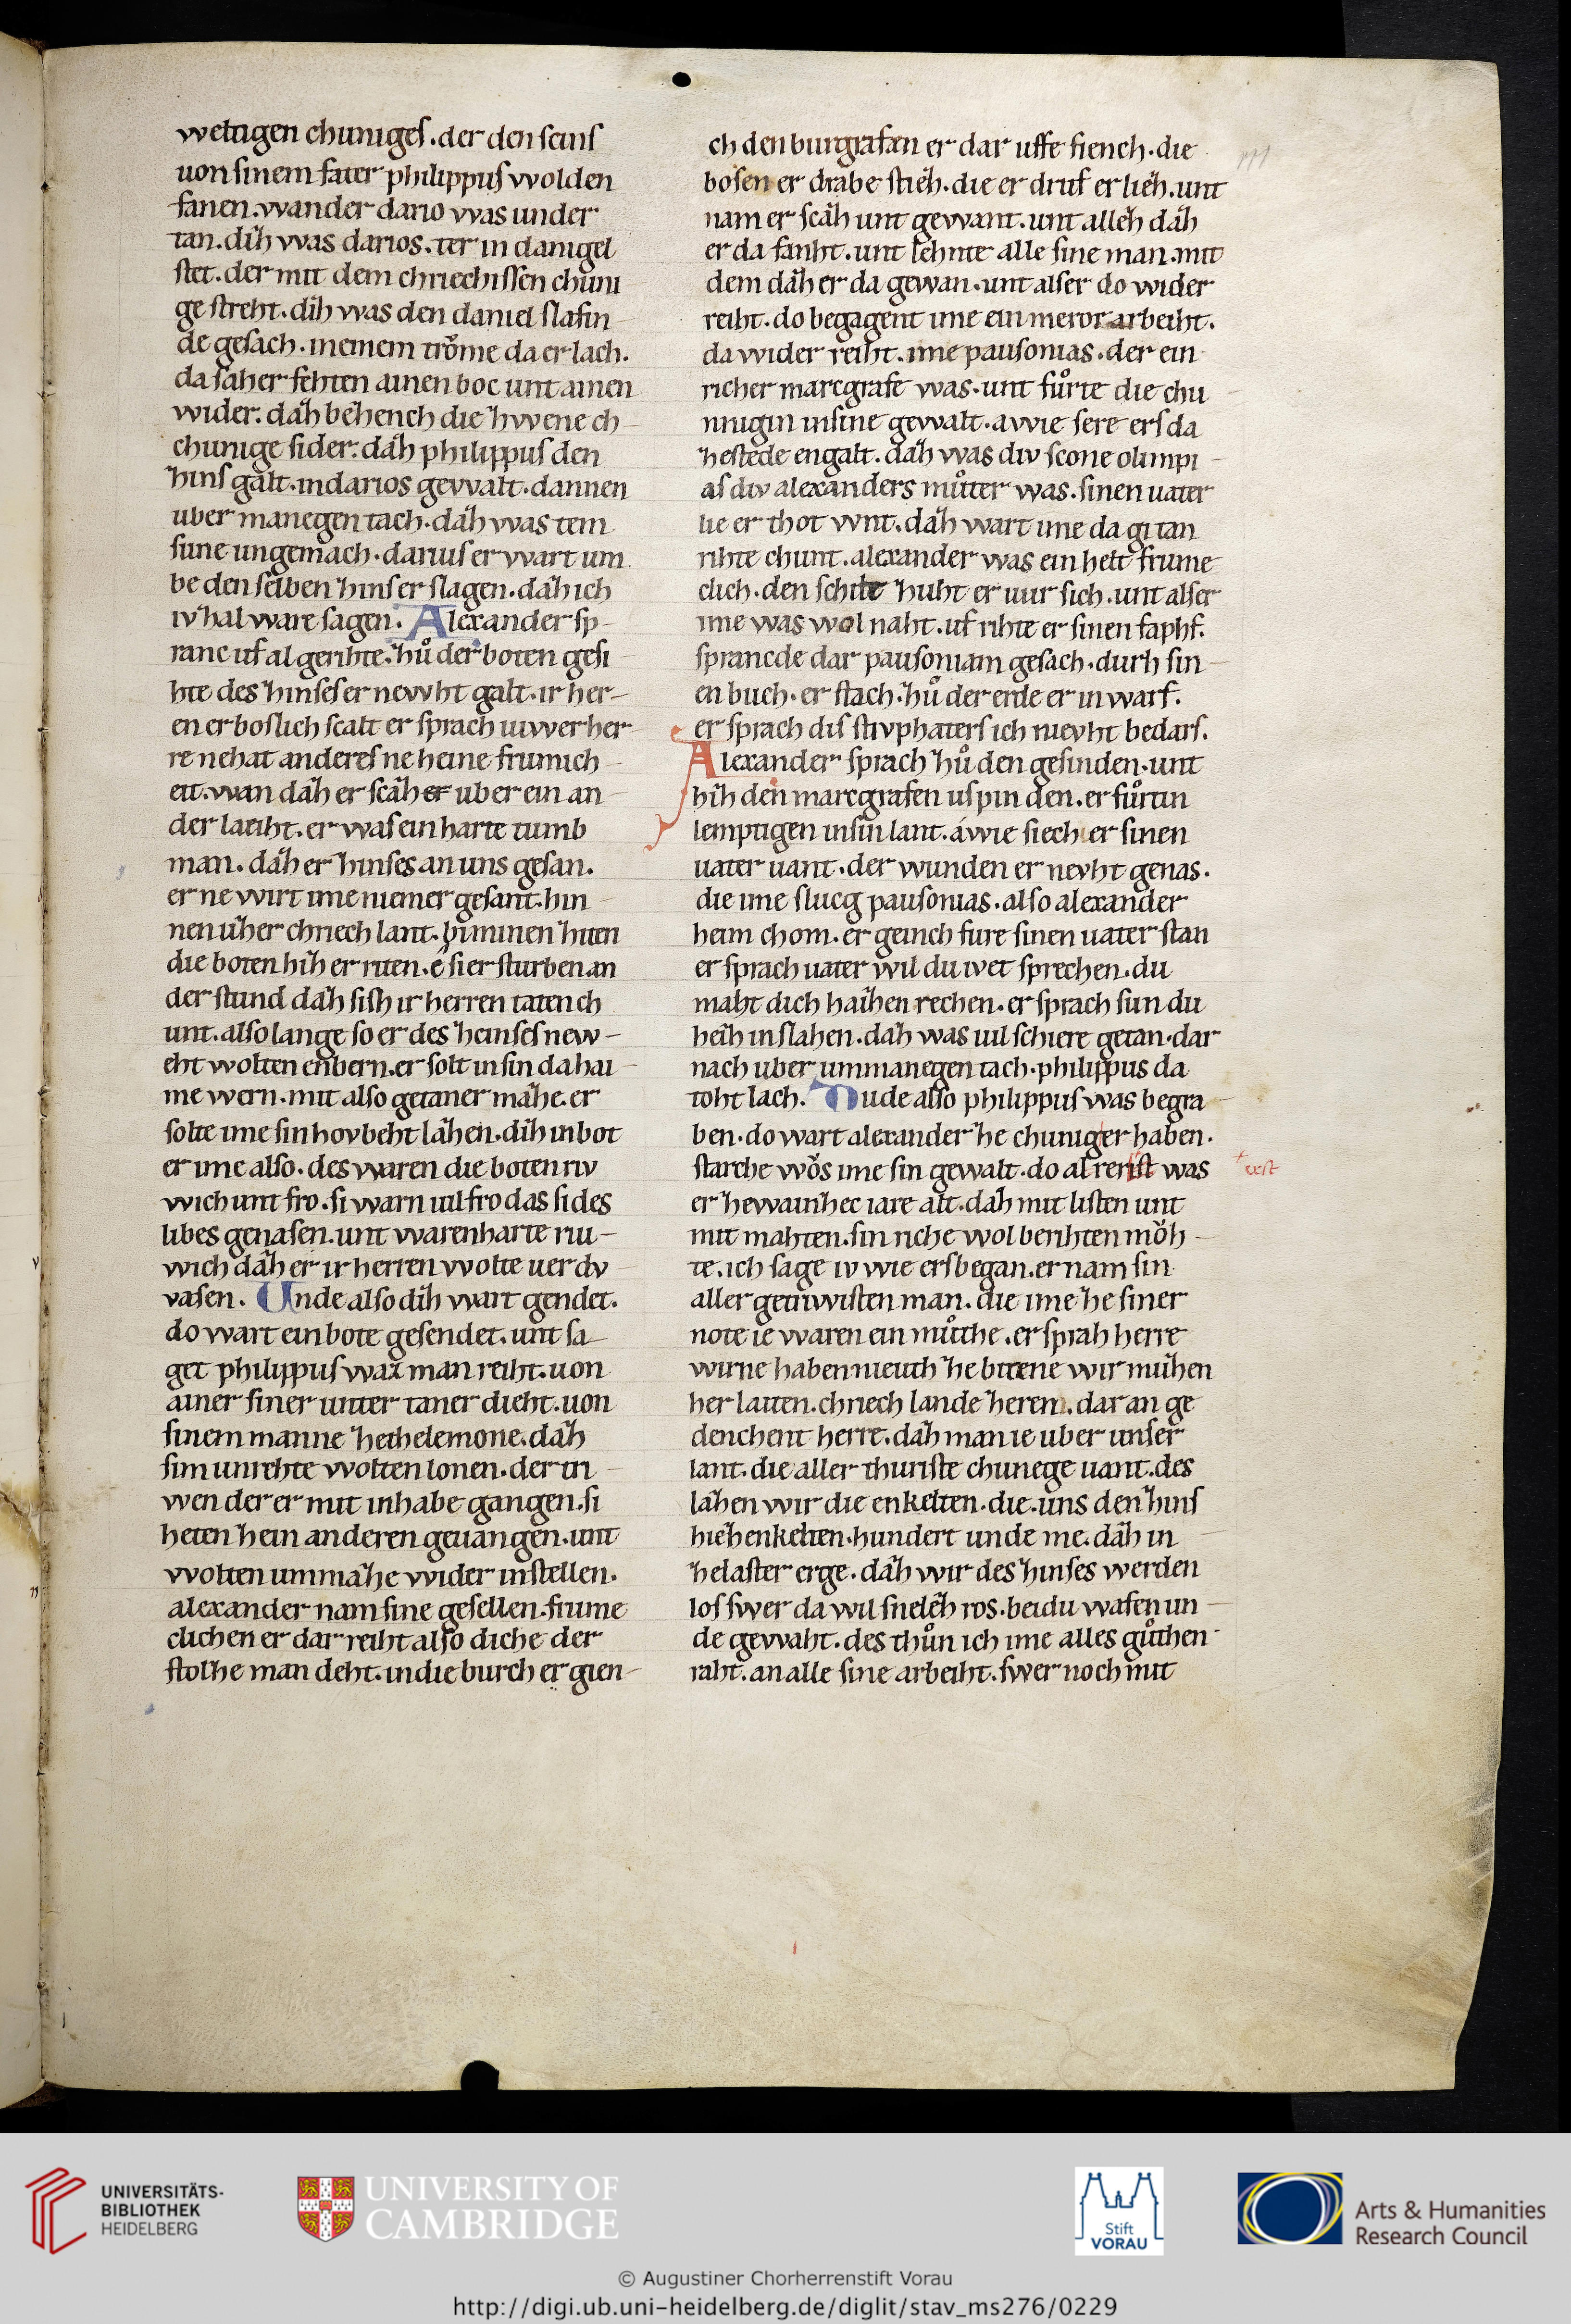 weltigen chuniges. der den scins
uon sinem fater philippus wolden
fanen. wander dario was under
tan. diz was darios. ter in danigel
stet. der mit dem chriechissen chuni
ge streht. diz was den daniel slafin
de gesach. ineinem trǒme da er lach.
da saher fehten ainen boc unt ainen
wider. daz bezench die zwene ch
chunige sider. daz philippus den
zins galt. indarios gewalt. dannen
uber manegen tach. daz was tem
sune ungemach. dariuser wart um
be den selben zinser slagen. daz ich
iv zal ware sagen. Alexander sp
ranc uf al gerihte. zů der boten gesi
hte des zinseser newht galt. ir her
en er boslich scalt er sprach iuwer her
re nehat anderes ne heine frumich
eit. wan daz er scazer uber ein an
der laeiht. er was ein harte tumb
man. daz er zinses an uns gesan.
er ne wirt ime niemer gesant. hin
nen uzer chriech lant. biminen ziten
die boten hiz er riten. e si er sturben an
der stund daz sish ir herren taten ch
unt. also lange so er des zeinses new
eht wolten enbern. er solt in sin da hai
me wern. mit also getaner maze. er
solte ime sin hovbeht lazen. diz inbot
er ime also. des waren die boten riv
wich unt fro. si warn uil fro das si des
libes genasen. unt waren harte riu
wich daz er ir herren wolte uer dv
vasen. Unde also diz wart gendet.
do wart ein bote gesendet. unt sa
get philippus waz man reiht. uon
ainer siner unter taner dieht. uon
sinem manne zethelemone. daz
sim unrehte wolten lonen. der tri
wen der er mit in habe gangen. si
heten zein anderen geuangen. unt
wolten ummaze wider in stellen.
alexander nam sine gesellen. frume
clichen er dar reiht also diche der
stolze man deht. in die burch er gien
ch den burgrafen er dar uffe fiench. die
bosen er drabe stiez. die er druf er liez. unt
nam er scaz unt gewant. unt allez daz
er da fanht. unt lehnte alle sine man. mit
dem daz er da gewan. unt alser do wider
reiht. do begagent ime ein meror arbeiht.
da wider reiht. ime pausonias. der ein
richer marcgrafe was. unt fůrte die chu
nnigin in sine gewalt. awie sere ers da
zestede engalt. daz was div scone olimpi
as div alexanders můter was. sinen uater
lie er thot wnt. daz wart ime da gi tan
rihte chunt. alexander was ein helt frume
clich. den schilt zuht er uur sich. unt alser
ime was wol naht. uf rihte er sinen saphf.
sprancde dar pausoniam gesach. durh sin
en buch. er stach. zů der erde er in warf.
er sprach dis stivphaters ich nievht bedarf.
Alexander sprach zů den gesinden. unt
hiz den marcgrafen uf pin den. er fůrtin
lemptigen in sin lant. awie siech er sinen
uater uant. der wunden er nevht genas.
die ime slucg pausonias. also alexander
heim chom. er geinch fure sinen uater stan
er sprach uater wil du ivet sprechen. du
maht dich haizen rechen. er sprach sun du
heiz in slahen. daz was uil schiere getan. dar
nach uber ummanegen tach. philippus da
toht lach. Unde also philippus was begra
ben. do wart alexander ze chuniger haben.
starche wǒs ime sin gewalt. do al rerist was
er zewainzec iare alt. daz mit listen unt
mit mahten. sin riche wol berihten mǒh
te. ich sage iv wie ers began. er nam sin
aller getriwisten man. die ime ze siner
note ie waren ein můthe. er sprah herre
wirne haben nieuth ze bitene wir muzen
her laiten. chriech lande zeren. dar an ge
denchent herre. daz man ie uber unser
lant. die aller thuriste chunege uant. des
lazen wir die enkelten. die uns den zins
hiezenkelten. hundert unde me. daz in
zelaster erge. daz wir des zinses werden
los swer da wil snelez ros. beidu wafen un
de gewaht. des thůn ich ime alles gůthen
raht. an alle sine arbeiht. swer noch mit
UNIVERSITÄTS-
BIBLIOTHEK
HEIDELBERG
UNIVERSITY OF
CAMBRIDGE
Stift
VORAU
Arts & Humanities
Research Council
© Augustiner Chorherrenstift Vorau
http://digi.ub.uni-heidelberg.de/diglit/stav_ms276/0229